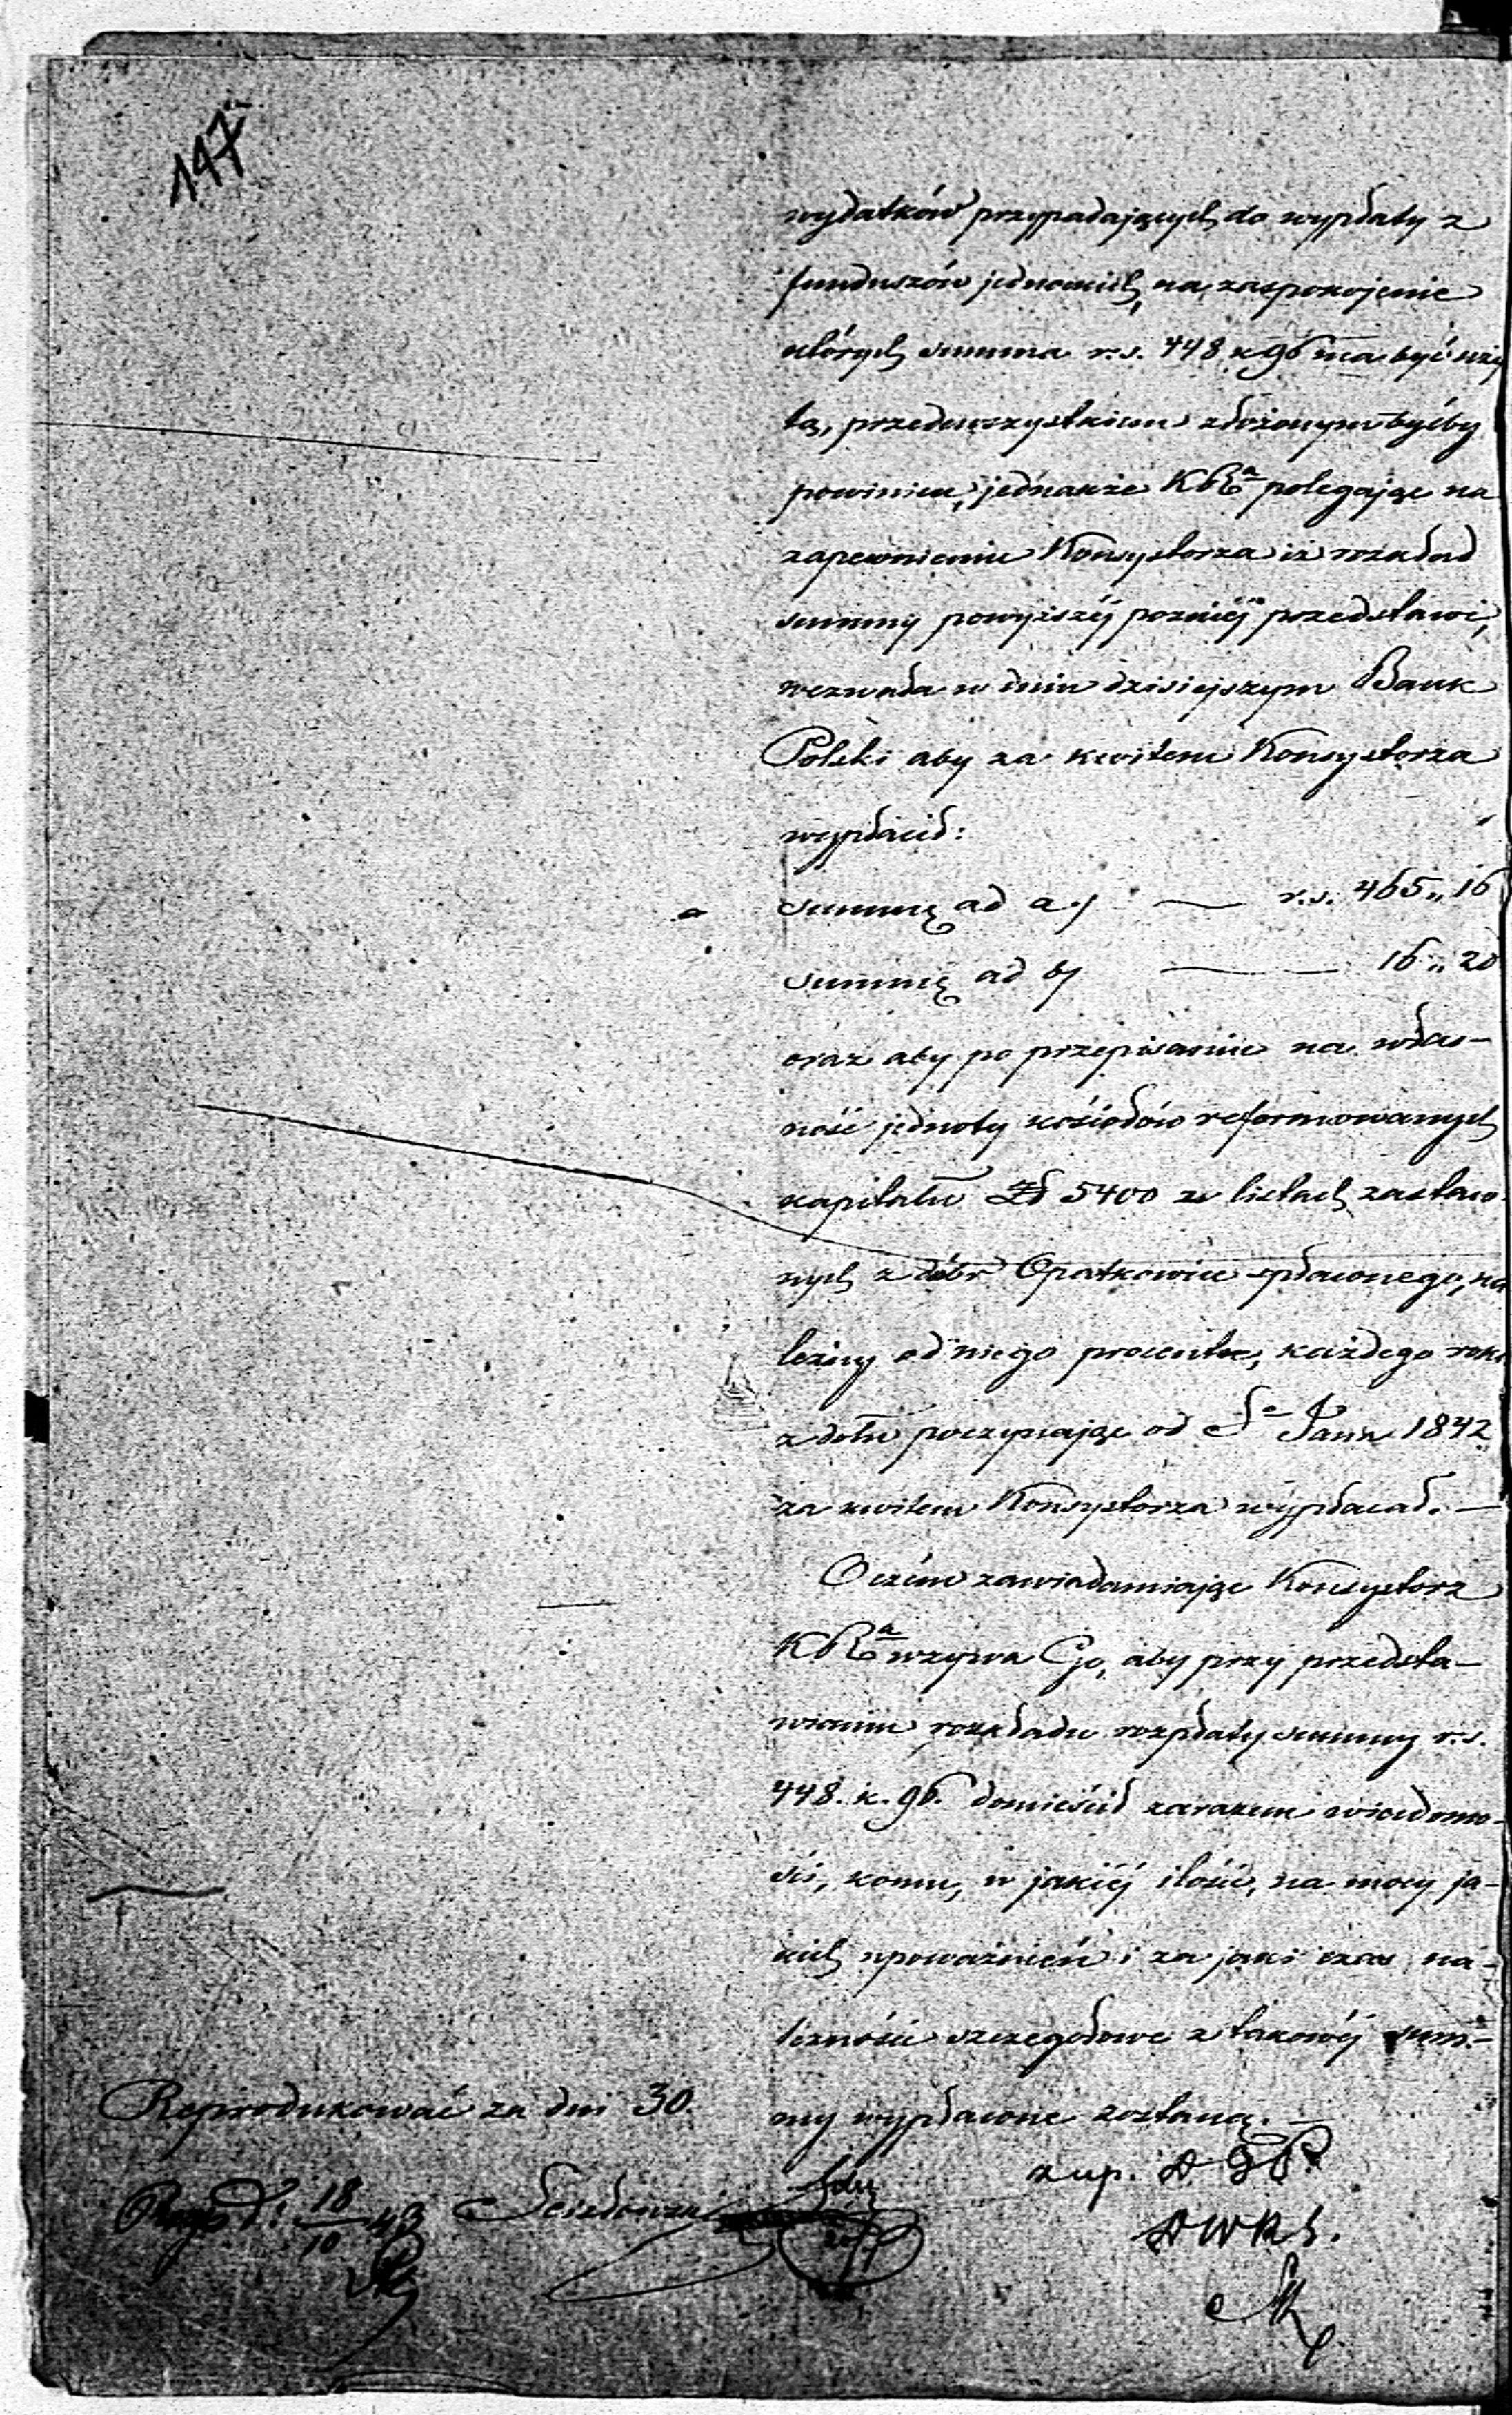 147
wydatków przypadających do wypłaty z
funduszów jednockich, na zaspokojenie
których summa r.s. 448 k 96 ma być uży
tą, przedewszystkiem złożonym byćby
powinien, jednakże KRz^a polegając na
zapewnieniu Konsystorza iż rozkład
summy powyższéj pozniéj przedstawi,
wezwała w dniu dzisiejszym Bank
Polski aby za kwitem Konsystorza
wypłacił:
summę ad a./ — r.s. 465„ 16
summę ad b/ — 16„ 20
oraz aby po przepisaniu na włas-
ność jednoty kościołów reformowanych
kapitału Zł 5400 w listach zastaw
nych z dóbr Opatkowice spłaconego, na
leżny od niego procent, każdego roku
z dołu poczynając od S^o Jana 1842
za kwitem Konsystorza wypłacał. —
O czém zawiadamiając Konsystorz
KRz^a wzywa Go, aby przy przedsta-
wieniu rozkładu rozpłaty summy r.s.
448. k. 96. domieścił zarazem wiadomo-
ści, komu, w jakiéj ilości, na mocy ja-
kich upoważnień i za jaki czas na-
leżności szczegółowe z takowéj sum-
my wypłacone zostaną. —
Reprodukować za dni 30.
z up. D G P
D W R S.
18/10 43